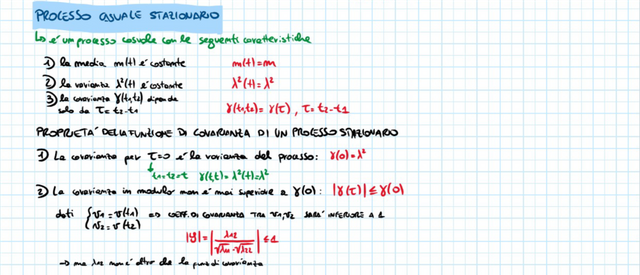 PROCESSO CASUALE STAZIONARIO
↳ è un processo casuale con le seguenti caratteristiche
1) la media m(t) è costante m(t)=m
2) la varianza λ²(t) è costante λ²(t)=λ²
3) la covarianza γ(t₁,t₂) dipende
solo da τ=t₂-t₁ γ(t₁,t₂)=γ(τ), τ=t₂-t₁
PROPRIETA' DELLA FUNZIONE DI COVARIANZA DI UN PROCESSO STAZIONARIO
1) La covarianza per τ=0 è la varianza del processo: γ(0)=λ²
↳ t₁=t₂=t γ(t,t)=λ²(t)=λ²
2) La covarianza in modulo non è mai superiore a γ(0): |γ(τ)|≤γ(0)
dati { v₁=v(t₁) v₂=v(t₂) => COEFF. DI COVARIANZA TRA v₁,v₂ SARA' INFERIORE A 1
|φ|=|λ₁₂/(√λ₁₁·√λ₂₂)|≤1
→ ma λ₁₂ non è altro che la funz. di covarianza